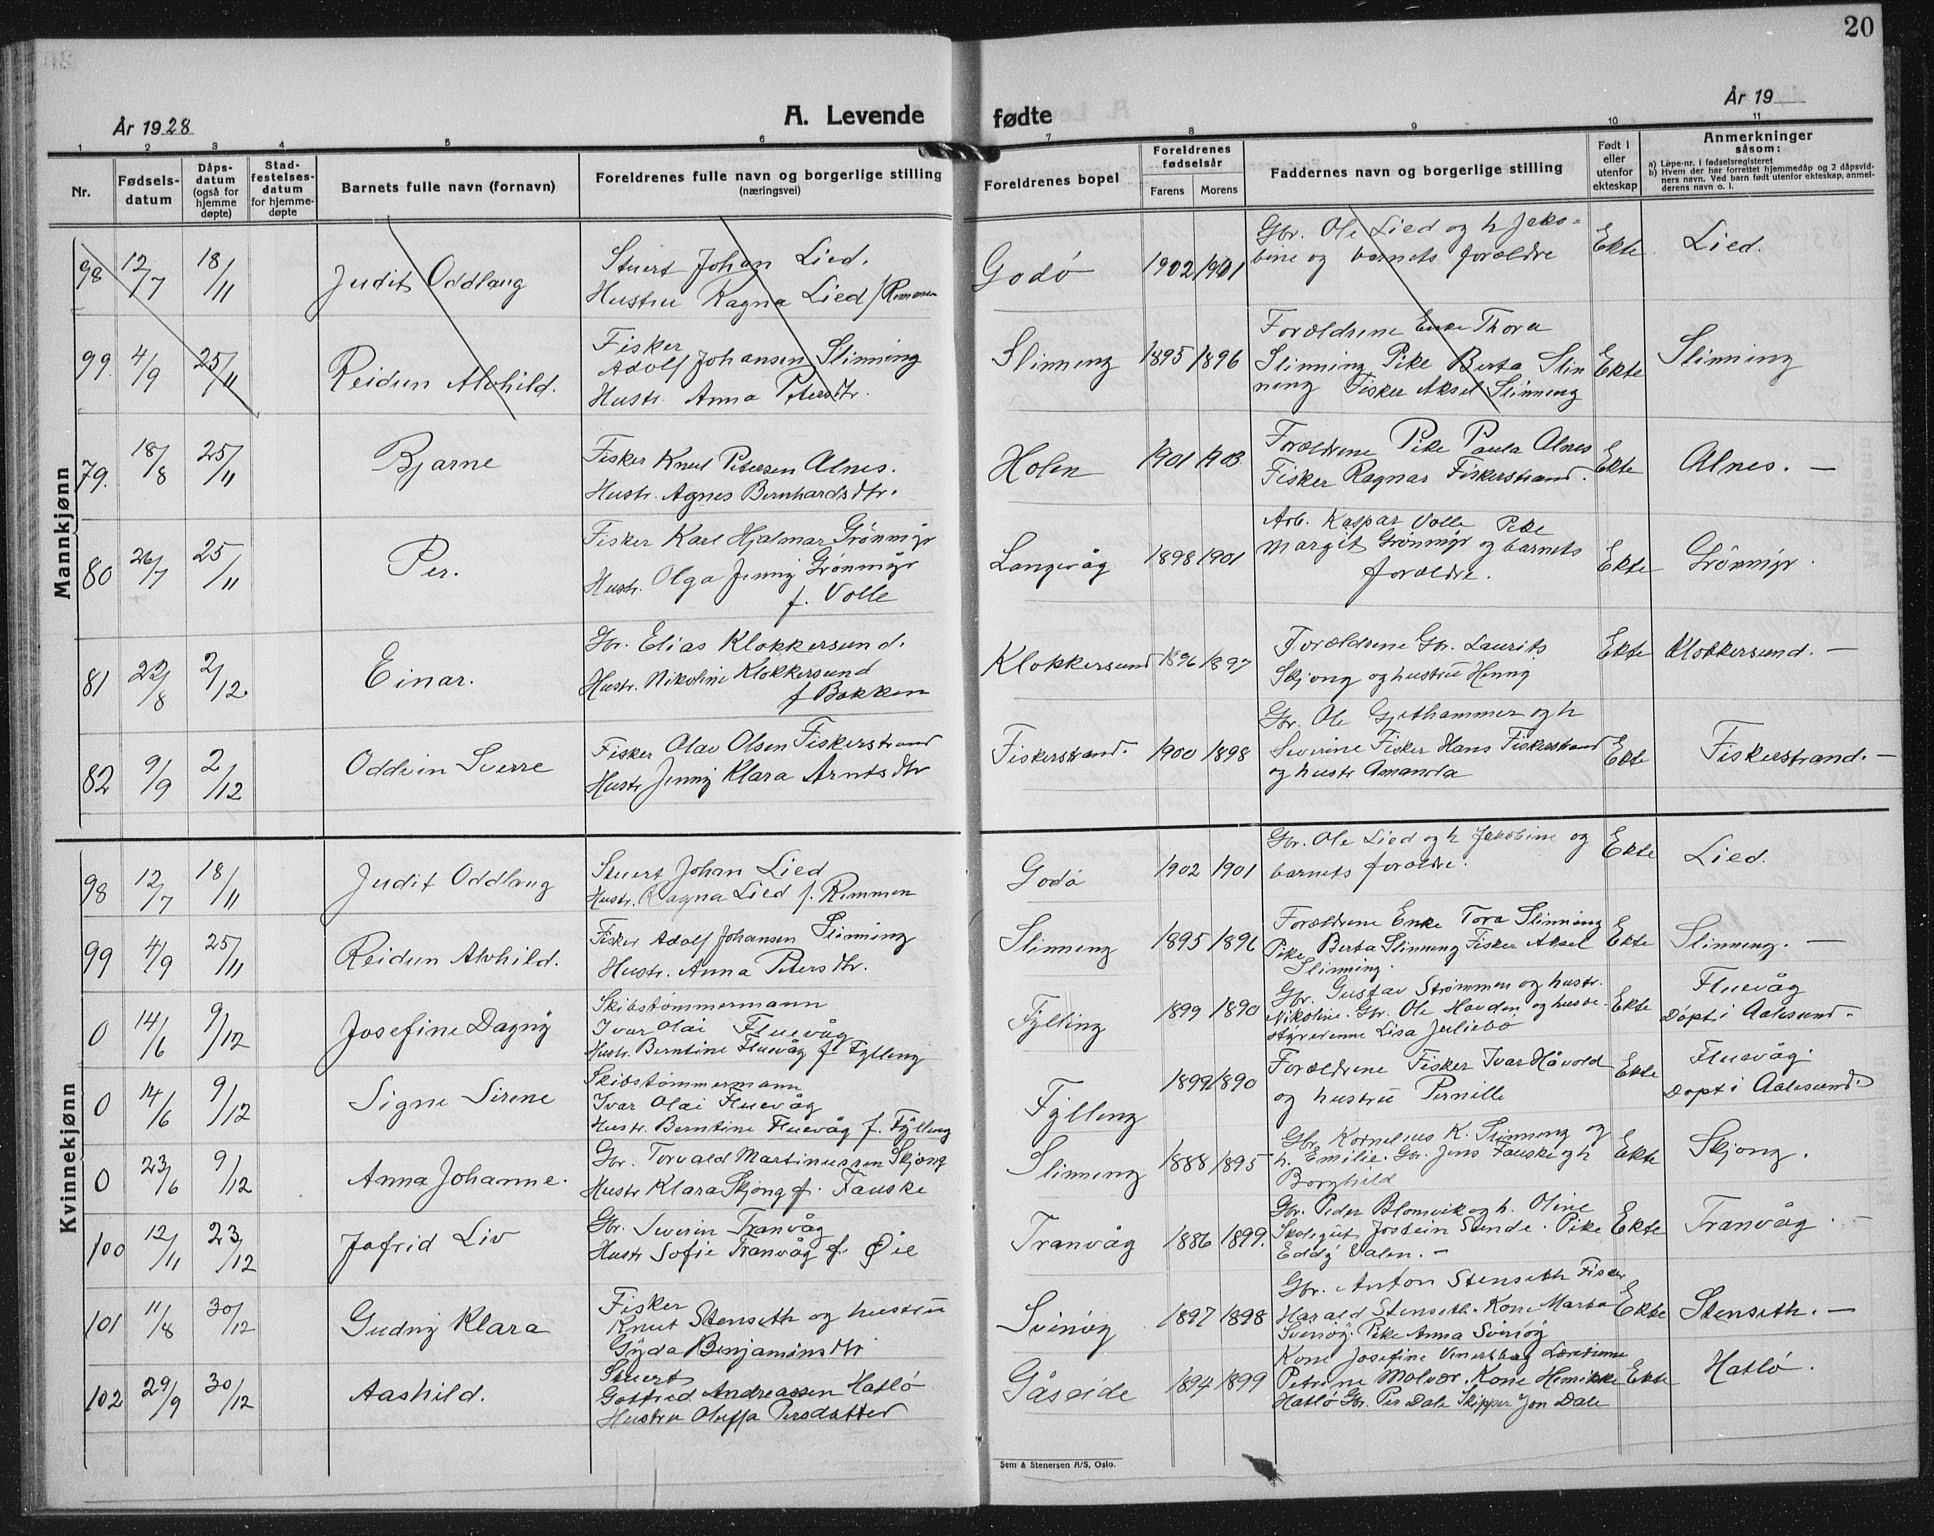 20
År 1928
A. Levende
fødte
År 19
1 2 3 4 5 6 7 8 9 10 11
Nr.
Fødsels-
datum
Dåps-
datum
(også for
hjemme
døpte)
Stad-
festelses-
datum
for hjemme-
døpte
Barnets fulle navn (fornavn)
Foreldrenes fulle navn og borgerlige stilling
(næringsvei)
Foreldrenes bopel
Foreldrenes
fødselsår
Farens Morens
Faddernes navn og borgerlige stilling
Født i
eller
utenfor
ekteskap
Anmerkninger
såsom:
a) Løpe-nr. i fødselsregisteret
b) Hvem der har forrettet hjemmedåp og 2 dåpsvid-
ners navn. Ved barn født utenfor ekteskap, anmel-
derens navn o. l.
Mannkjønn
98 12/7 18/11 Judit Oddlaug
Stuert Johan Lied.
Hustru Ragna Lied f Remmen
Godø 1902 1901
Gbr. Ole Lied og h Jeko-
bine og barnets forældre
Ekte Lied.
99. 4/9 25/11 Reidun Alvhild.
Fisker
Adolf Johansen Slinning
Hustr. Anna Petersdtr.
Slinning 1895 1896
Forældrene Enke Thora
Slinning Pike Berta Slin
ning Fisker Aksel Slinning
Ekte Slinning
79. 18/8 25/11 Bjarne
Fisker Knut Petersen Alnes.
Hustr. Agnes Bernhardsdtr.
Holen 1901 1903
Forældrene Pike Paula Alnes
Fisker Ragnar Fiskerstrand.
Ekte Alnes. —
80 26/7 25/11 Per.
Fisker Karl Hjalmar Grønmyr
Hustr. Olga Jenny Grønmyr
f. Volle
Langevåg 1898 1901
Arb. Kaspar Volle Pike
Margit Grønmyr og barnets
forældre.
Ekte Grønmyr.
81 22/8 2/12. Einar.
Gbr. Elias Klokkersund.
Hustr. Nikoline Klokkersund
f Bakken
Klokkersund 1896 1897
Forældrene Gbr. Laurits
Skjong og hustru Henny
Ekte Klokkersund. —
82 9/9 2/12 Oddvin Sverre
Fisker Olav Olsen Fiskerstrand
Hustr Jenny Klara Arntsdtr
Fiskerstrand. 1900 1898
Gbr. Ole Gjethammer og h
Severine Fisker Hans Fiskerstrand
og hustr Amanda
Ekte Fiskerstrand. —
Kvinnekjønn
98 12/7 18/11 Judit Oddlaug
Stuert Johan Lied
Hustr. Ragna Lied f. Remmen
Godø 1902 1901
Gbr. Ole Lied og h Jekobine og
barnets forældre.
Ekte Lied.
99 4/9 25/11 Reidun Alvhild.
Fisker Adolf Johansen Slinning
Hustr. Anna Petersdtr.
Slinning 1895 1896
Forældrene Enke Tora Slinning
Pike Berta Slinning Fisker Aksel
Slinning.
Ekte Slinning. —
0 14/6 9/12 Josefine Dagny
Skibstømmermann
Ivar Olai Fluevåg
Hustr. Berntine Fluevåg f. Fylling
Fylling 1899 1890
Gbr. Gustav Strømmen og hustr.
Nikoline. Gbr. Ole Havden og husbe-
styrerinne Lisa Juliebø
Ekte Fluevåg
Døpt i Aalesund.
0 14/6 9/12 Signe Sirene
Skibstømmermann
Ivar Olai Fluevåg
Hustr. Berntine Fluevåg f. Fylling
Fylling 1899 1890
Forældrene Fisker Ivar Håvold
og hustru Pernille
Ekte Fluevåg.
Døpt i Aalesund.
0 23/6 9/12 Anna Johanne.
Gbr. Torvald Martinussen Skjong
Hustr Klara Skjong f. Fauske
Slinning 1888 1895
Gbr Kornelius K. Slinning og
h. Emilie. Gbr. Jens Fauske og h
Borghild
Ekte Skjong.
100 12/11 23/12 Jofrid Liv
Gbr. Severin Tranvåg
Hustr Sofie Tranvåg f. Øie
Tranvåg 1886 1899.
Gbr. Peder Blomvik og h. Oline
Skolegut Jostein Sunde. Pike
Eddy Valen. —
Ekte Tranvåg. —
101 11/8 30/12 Gudny Klara
Fisker
Knut Stenseth og hustru
Gyda Benjaminsdtr
Svinøy 1897 1898
Gbr. Anton Stenseth Fisker
Harald Stenseth. Kone Marta
Svinøy. Pike Anna Svinøy
Ekte Stenseth. —
102 29/9 30/12 Aashild.
Stuert
Gotfred Andreassen Hatlø
Hustru Oluffa Persdatter
Gåseide 1894 1899
Kone Josefine Lærerinne
Petrine Molvær. Kone Henrikke
Hatlø Gbr. Per Dale Skipper Jon Dale
Ekte Hatlø.
Sem & Stenersen A/S, Oslo.